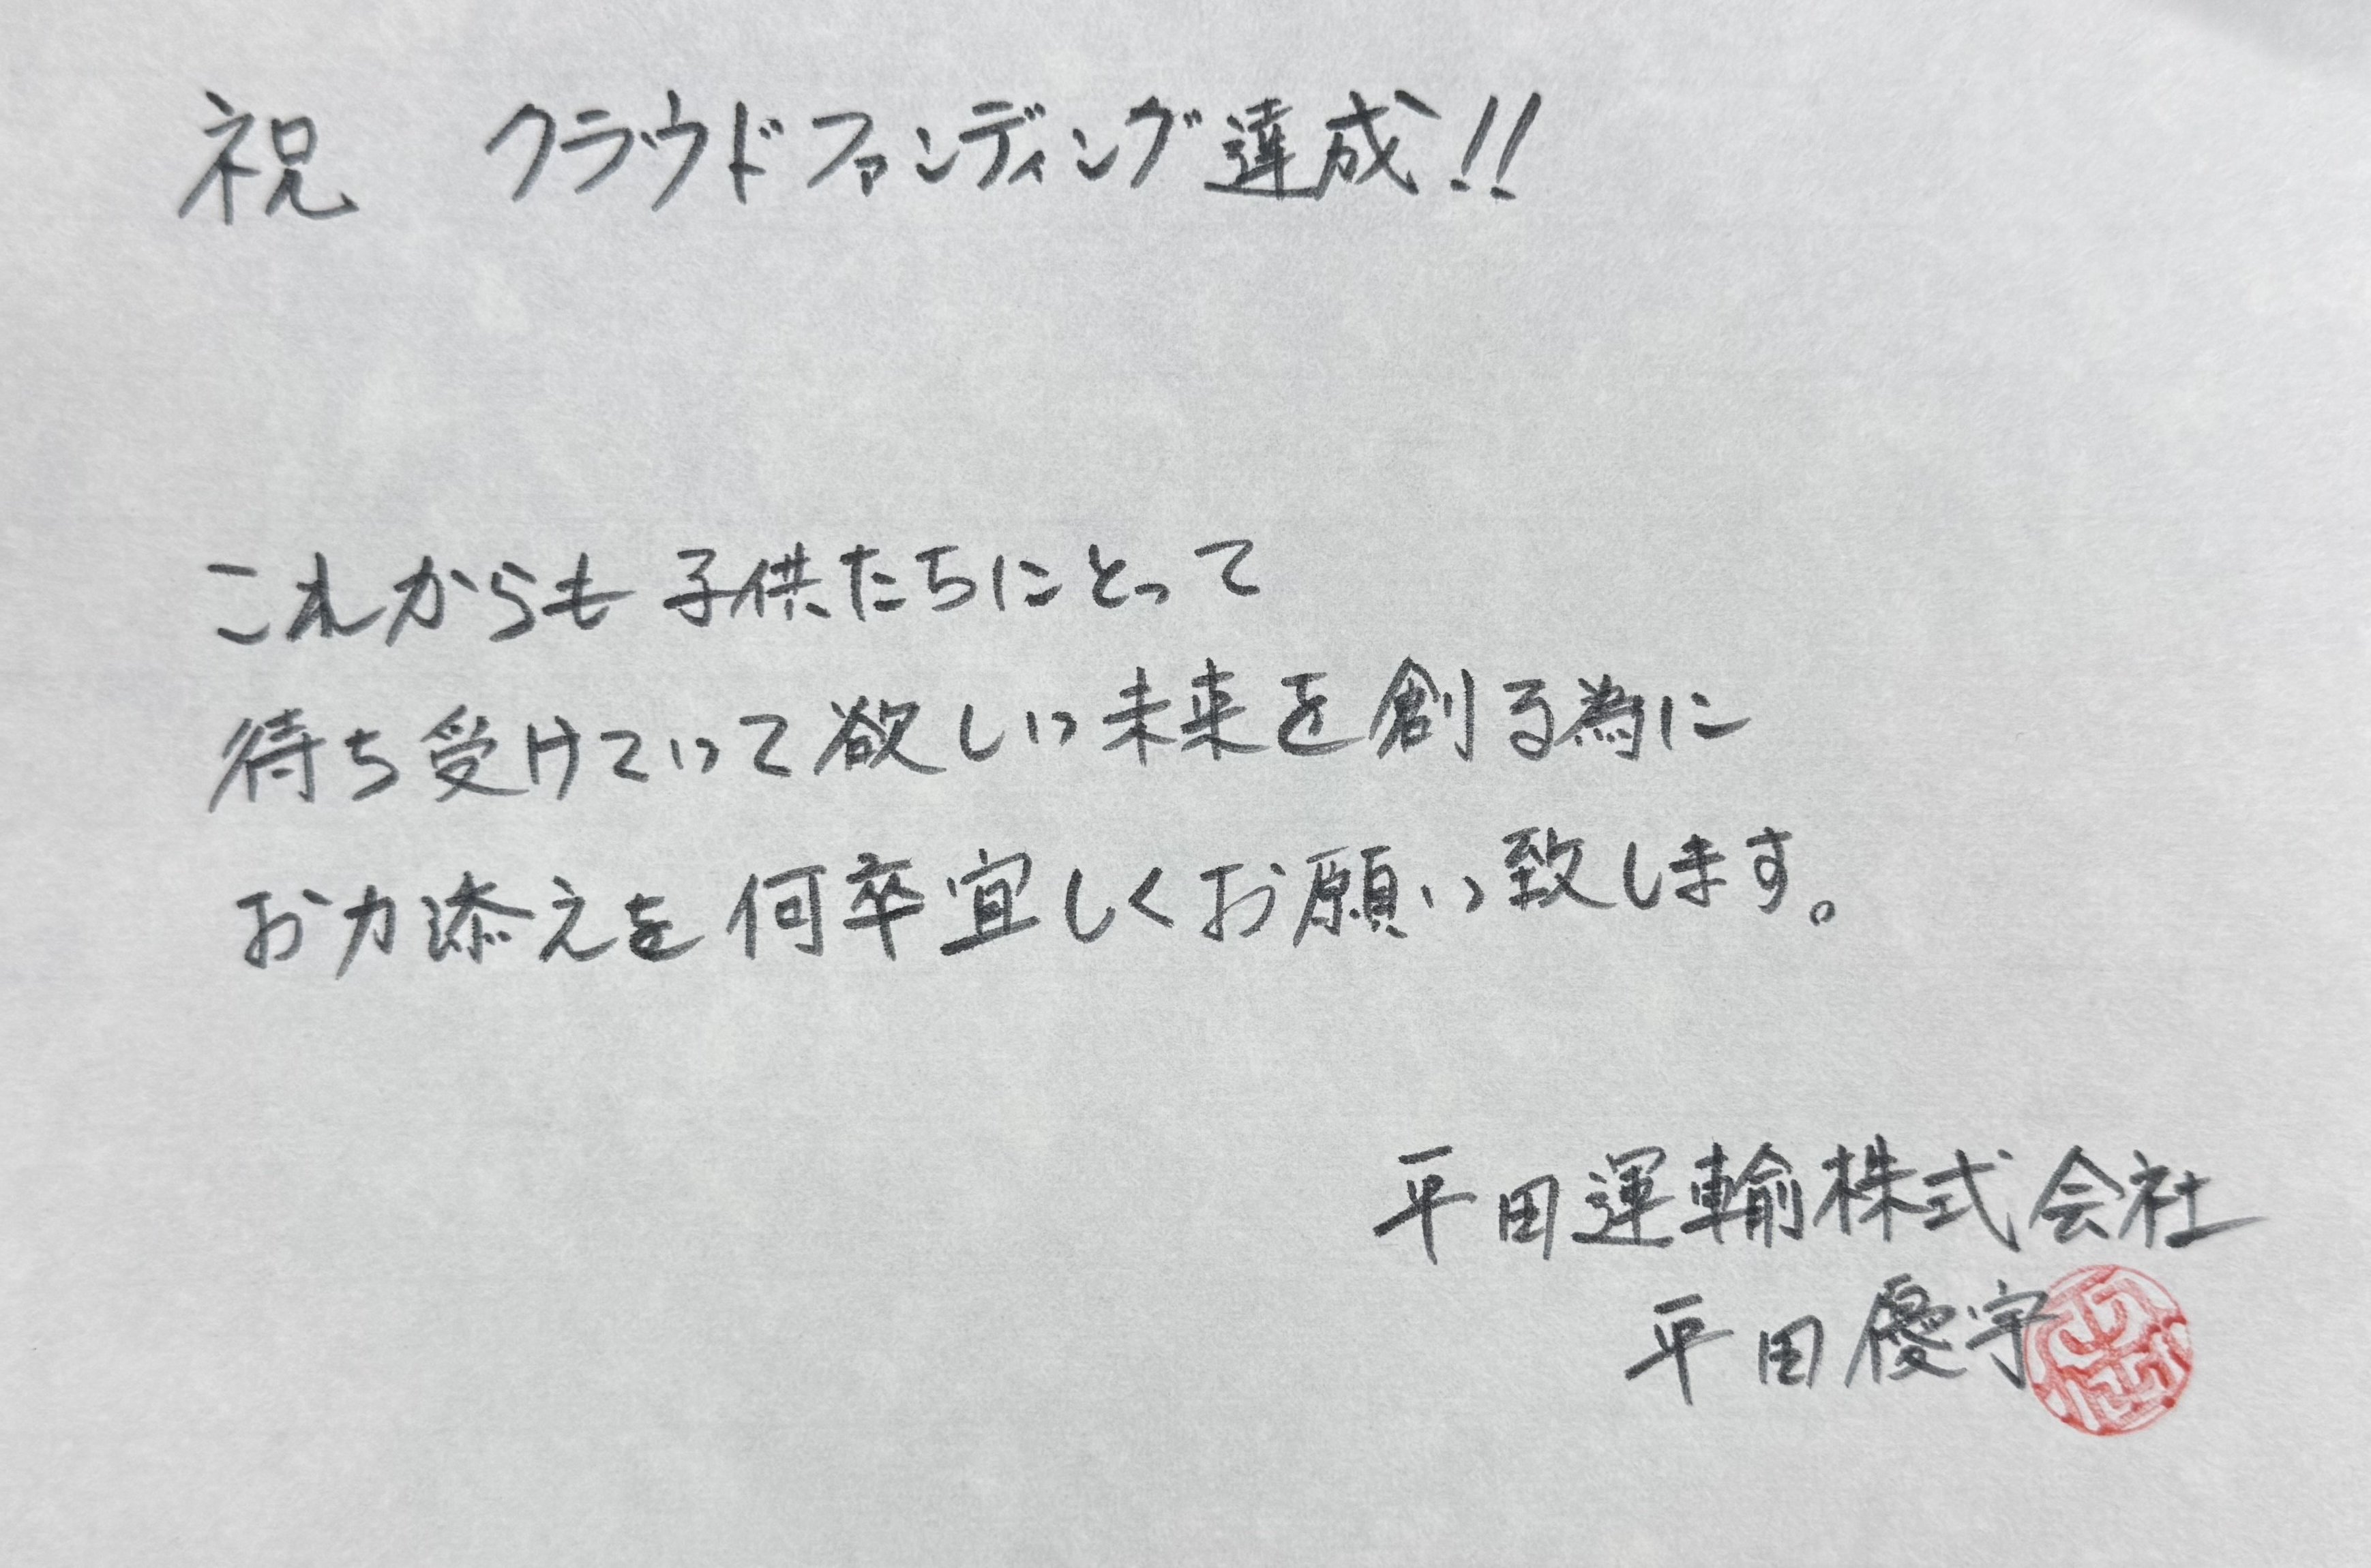 祝　クラウドファンディング達成!!
これからも子供たちにとって
待ち受けていて欲しい未来を創る為に
お力添えを何卒宜しくお願い致します。
平田運輸株式会社
平田優宇